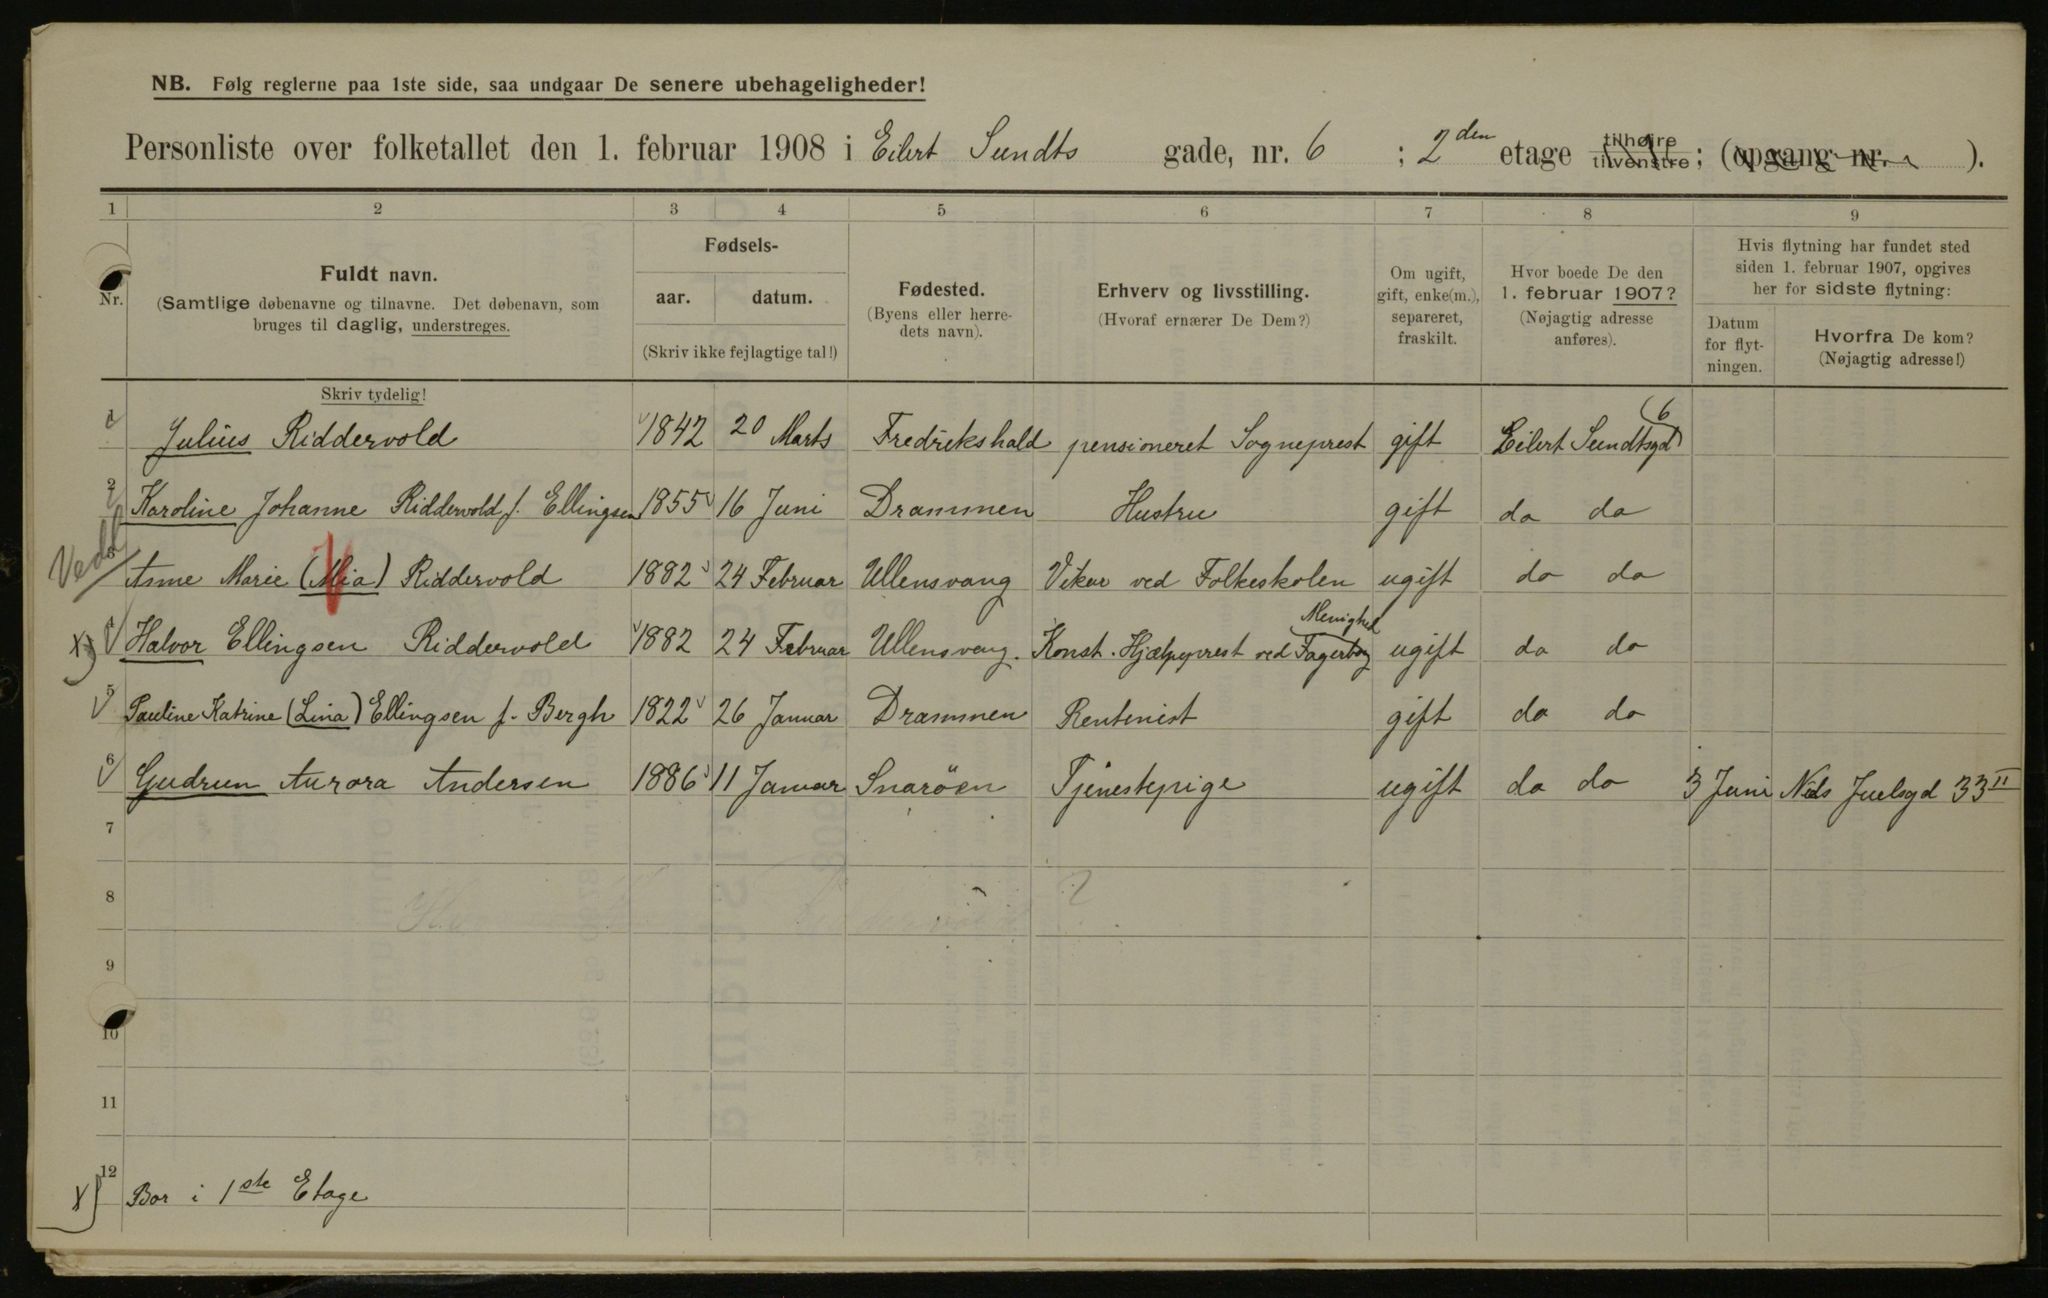 NB. Følg reglerne paa 1ste side, saa undgaar De senere ubehageligheder!
Personliste over folketallet den 1. februar 1908 i Eilert Sundts gade, nr. 6 ; 2den etage tilhøire tilvenstre ; (opgang nr. ).
1 2 3 4 5 6 7 8 9
Nr.
Fuldt navn.
(Samtlige døbenavne og tilnavne. Det døbenavn, som
bruges til daglig, understreges.
Skriv tydelig!
Fødsels-
aar. datum.
(Skriv ikke fejlagtige tal!)
Fødested.
(Byens eller herre-
dets navn).
Erhverv og livsstilling.
(Hvoraf ernærer De Dem?)
Om ugift,
gift, enke(m.),
separeret,
fraskilt.
Hvor boede De den
1. februar 1907?
(Nøjagtig adresse
anføres).
Hvis flytning har fundet sted
siden 1. februar 1907, opgives
her for sidste flytning:
Datum
for flyt-
ningen.
Hvorfra De kom?
(Nøjagtig adresse!)
1 Julius Riddervold 1842 20 Marts Fredrikshald pensioneret Sogneprest gift Eilert Sundtsgd 6
2 Karoline Johanne Riddervold f. Ellingsen 1855 16 Juni Drammen Hustru gift do do
3 Anne Marie (Mia) Riddervold 1882 24 Februar Ullensvang Vikar ved Folkeskolen ugift do do
x) 4 Halvor Ellingsen Riddervold 1882 24 Februar Ullensvang. Konst. Hjælpeprest ved Fagerborg Menighed ugift do do
5 Pauline Katrine (Lina) Ellingsen f. Bergh 1822 26 Januar Drammen Rentenist gift do do
6 Gudrun Aurora Andersen 1886 11 Januar Snarøen Tjenestepige ugift do do 3 Juni Nils Juelsgd 33 II
7
8
9
10
11
12
x) Bor i 1ste Etage